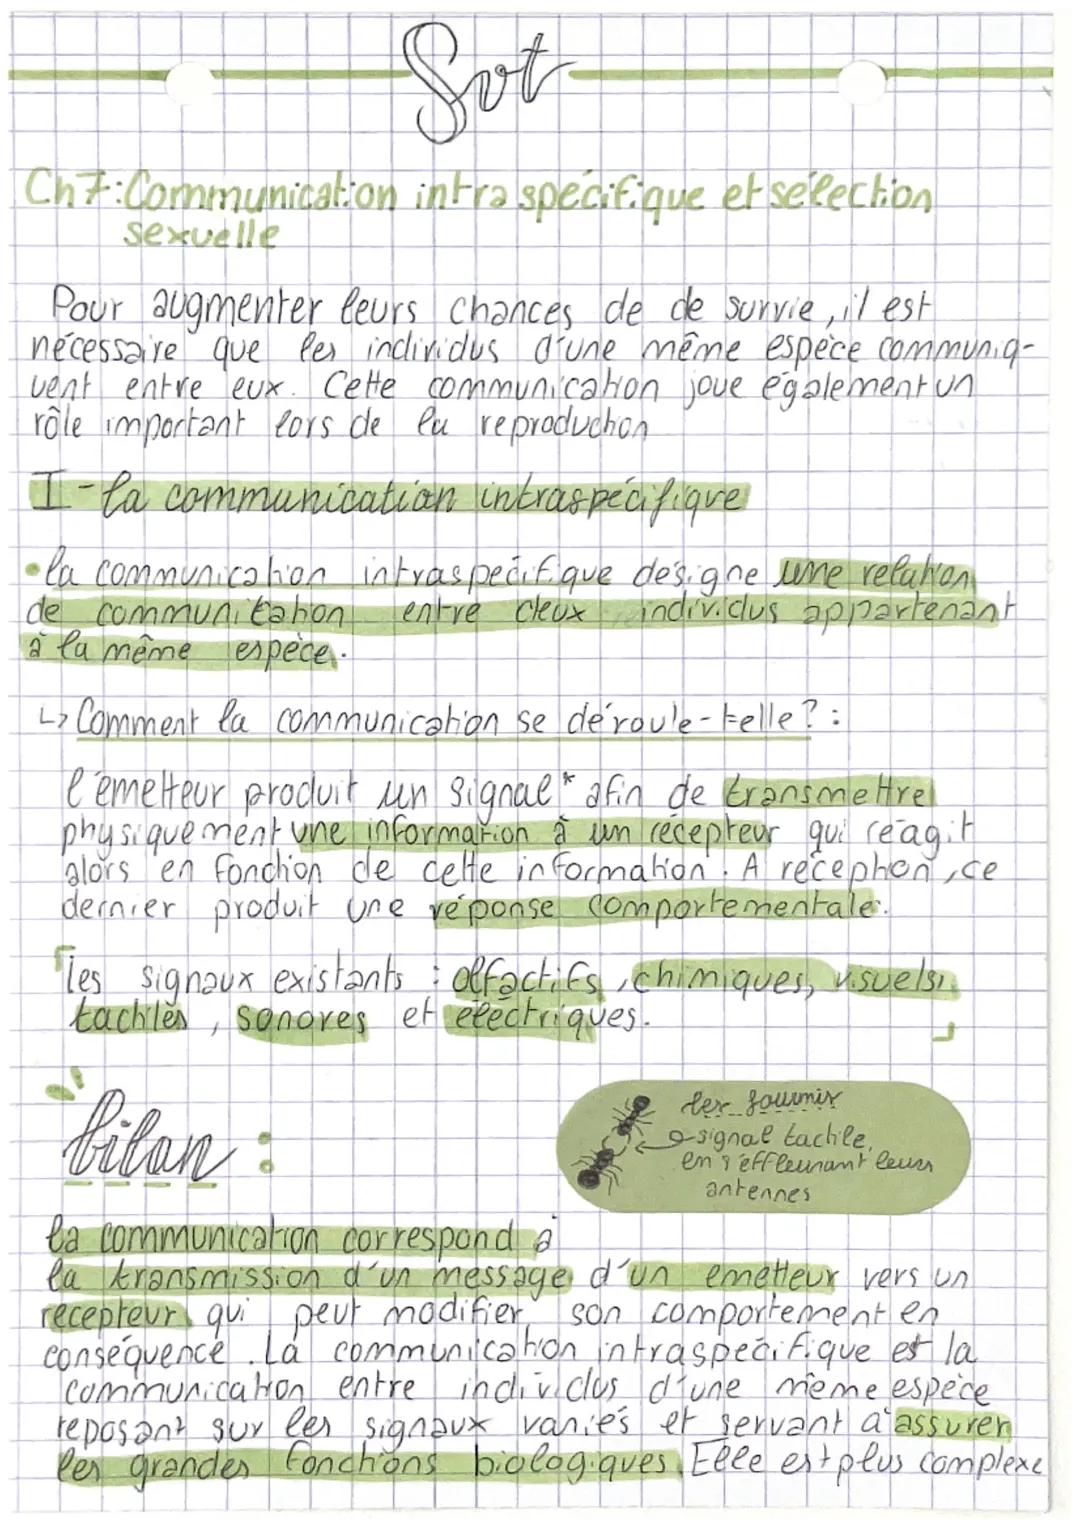 Svt
Ch7: Communication intraspécifique et sélection
sexuelle
Pour augmenter leurs chances de de survie, il est
nécessaire que les individus d'une même espèce communiq-
uent entre eux. Cette communication joue également un
rôle important lors de la reproduction
I - la communication intraspécifique
• la communication intraspécifique désigne une relation
de communication entre deux individus appartenant
à la même espèce.
↳ Comment la communication se déroule-telle ? :
l'émetteur produit un signal* afin de transmettre
physiquement une information à un récepteur qui réagit
alors en fonction de cette information. A réception, ce
dernier produit une réponse comportementale.
les signaux existants : olfactifs, chimiques, visuels,
tactiles, sonores et électriques.
bilan :
les fourmis
signal tactile,
en s'effleurant leurs
antennes
la communication correspond à
la transmission d'un message d'un émetteur vers un
récepteur qui peut modifier son comportement en
conséquence. La communication intraspécifique est la
communication entre individus d'une même espèce
reposant sur les signaux variés et servant à assurer
les grandes fonctions biologiques. Elle est plus complexe